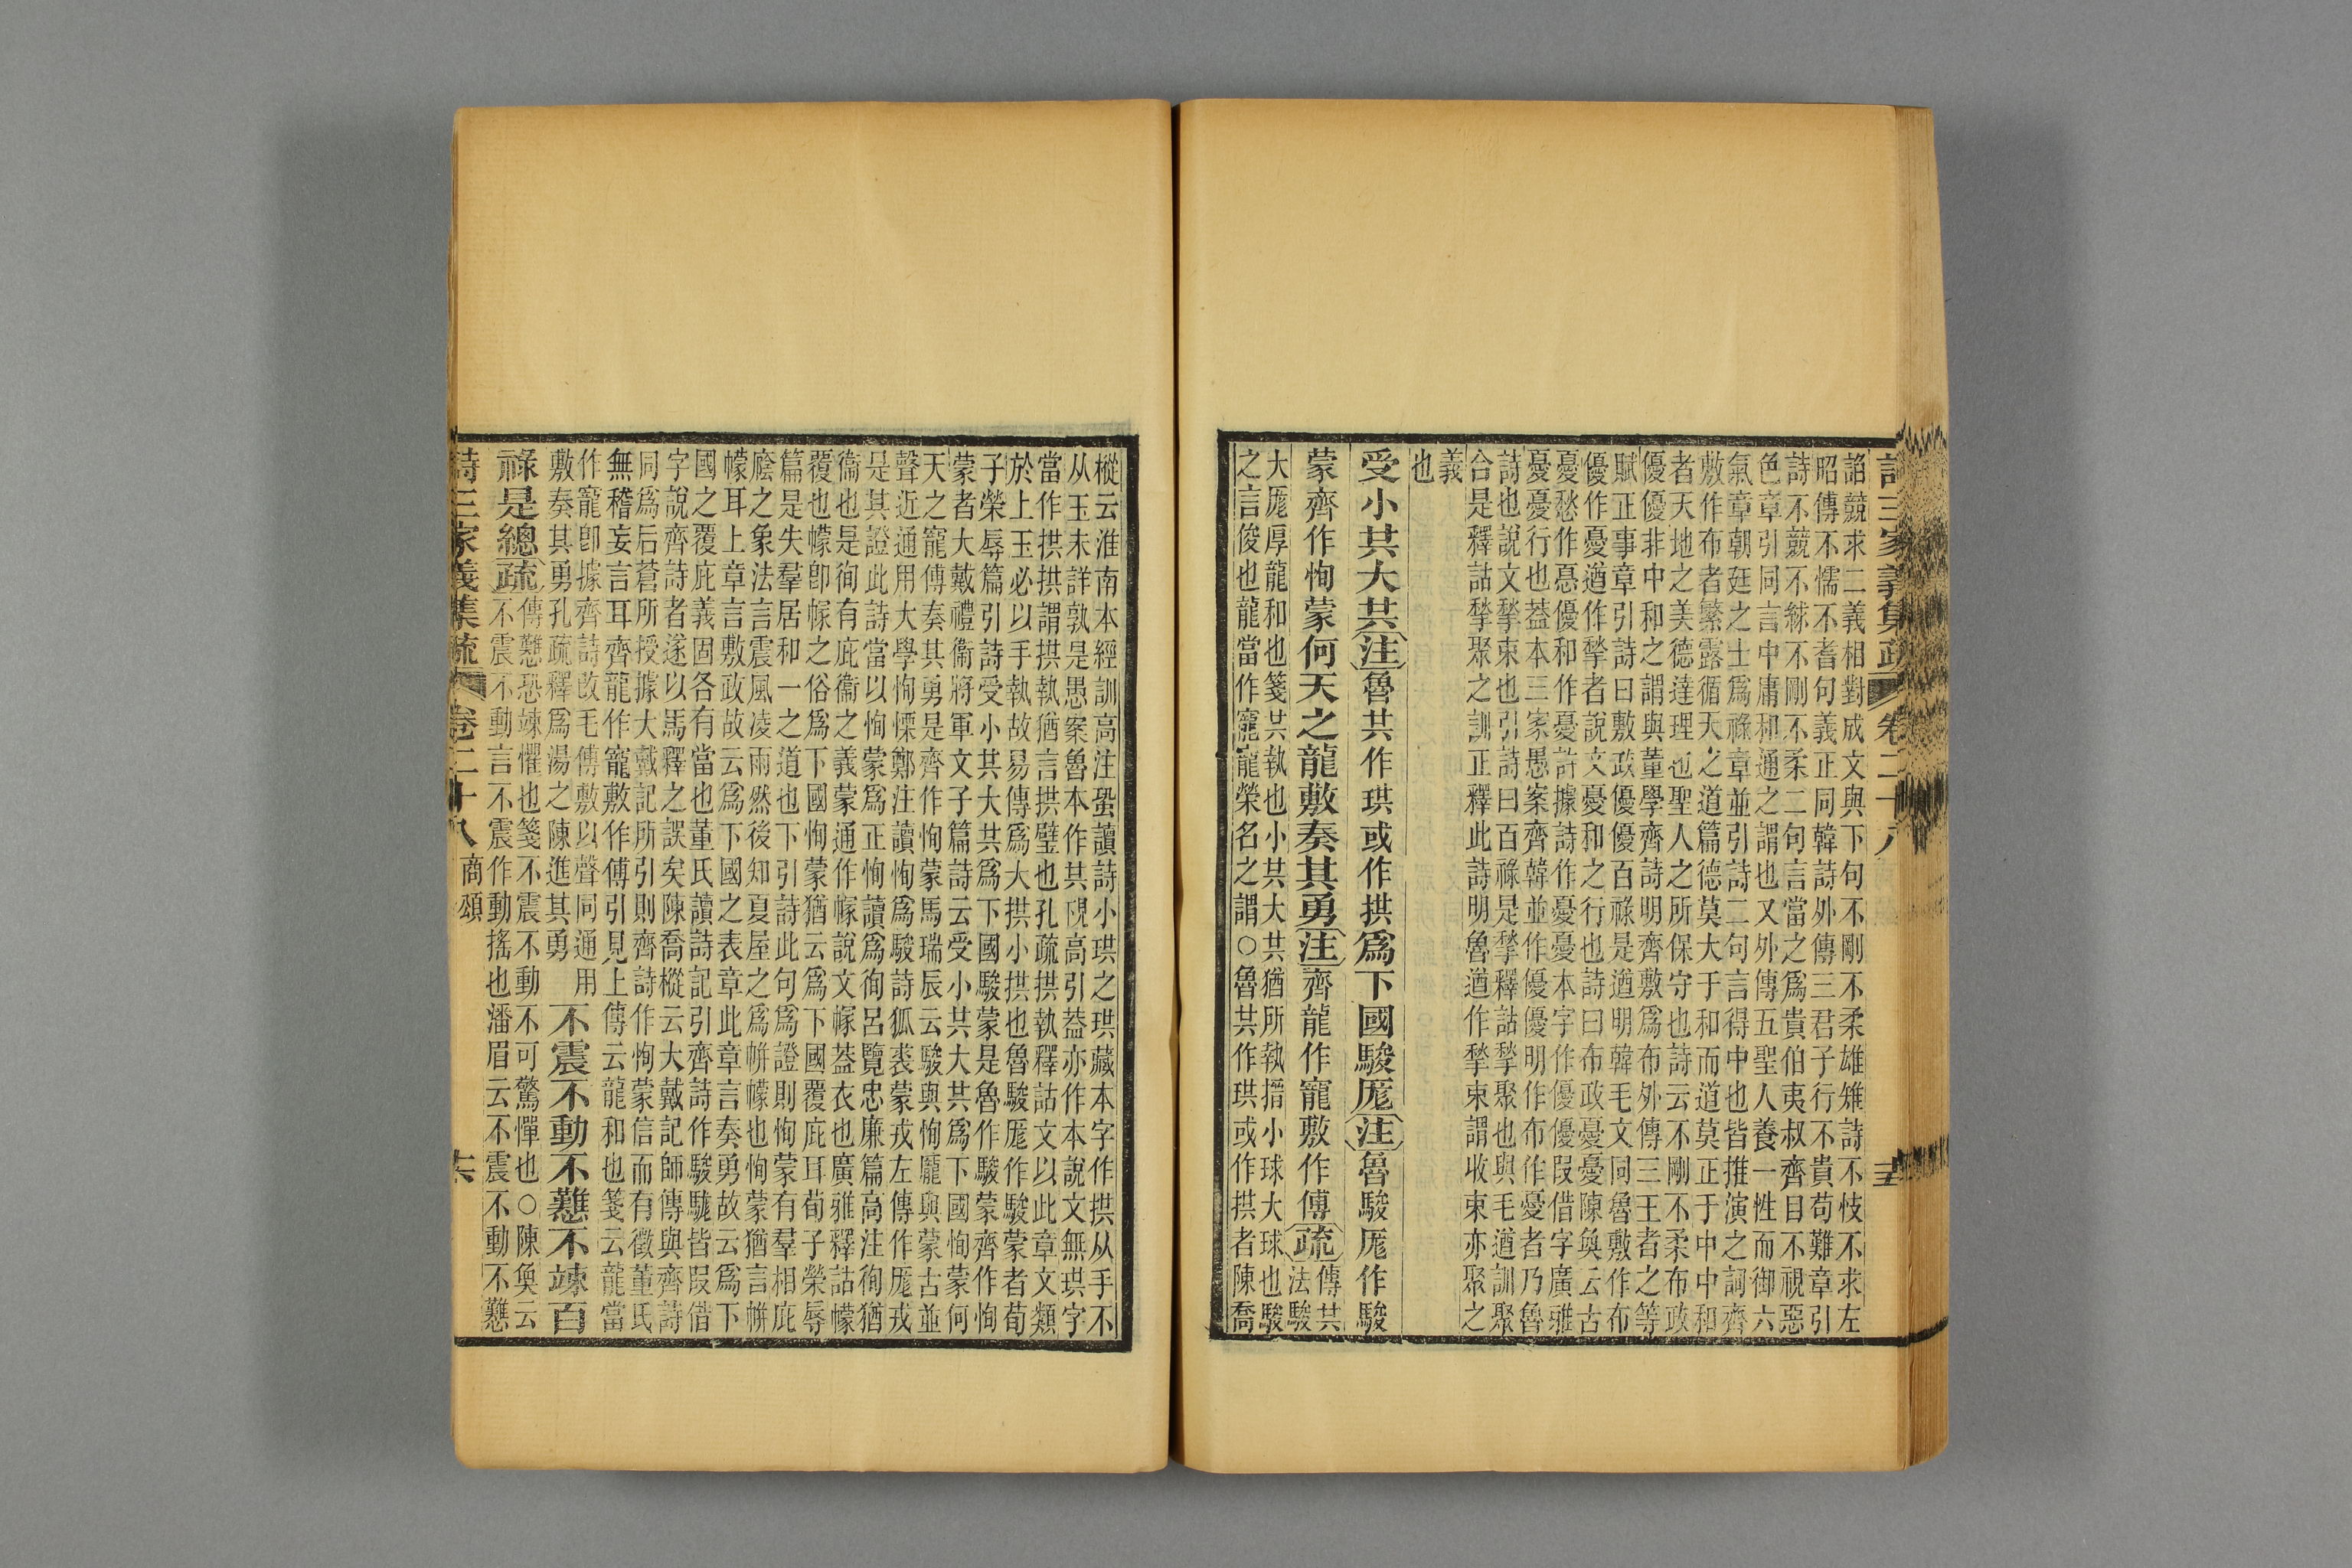 詩三家義集疏 卷二十八
詔競求二義相對成文與下句不剛不柔雄雉詩不忮不求左
昭傳不懦不耆句義正同韓詩外傳三君子行不貴苟難章引
詩不競不絿不剛不柔二句言當之爲貴伯夷叔齊目不視惡
色章引同言中庸和通之謂也又外傳五聖人養一性而御六
氣章朝廷之士爲祿章並引詩二句言得中也皆推演之詞齊
敷作布者繁露循天之道篇德莫大于和而道莫正于中中和
者天地之美德達理也聖人之所保守也詩云不剛不柔布政
優優非中和之謂與董學齊詩明齊敷爲布外傳三王者之等
賦正事章引詩曰敷政優優百祿是遒明韓毛文同魯敷作布
優作憂遒作揫者說文憂和之行也詩曰布政憂憂陳奐云古
憂愁作惪優和作憂許據詩作憂憂本字作優優叚借字廣雅
憂憂行也葢本三家愚案齊韓並作優優明作布作憂者乃魯
詩也說文揫束也引詩曰百祿是揫釋詁揫聚也與毛遒訓聚
合是釋詁揫聚之訓正釋此詩明魯遒作揫束謂收束亦聚之
義
也
受小共大共注魯共作珙或作拱爲下國駿厖注魯駿厖作駿
蒙齊作恂蒙何天之龍敷奏其勇注齊龍作寵敷作傅疏傳共
法駿
大厖厚龍和也箋共執也小共大共猶所執搢小球大球也駿
之言俊也龍當作寵寵榮名之謂○魯共作珙或作拱者陳喬
樅云淮南本經訓高注蛩讀詩小珙之珙藏本字作拱从手不
从玉未詳孰是愚案魯本作共硯高引葢亦作本說文無珙字
當作拱拱謂拱執猶言拱璧也孔疏拱執釋詁文以此章文類
於上玉必以手執故易傳爲大拱小拱也魯駿厖作駿蒙者荀
子榮辱篇引詩受小共大共爲下國駿蒙是魯作駿蒙齊作恂
蒙者大戴禮衞將軍文子篇詩云受小共大共爲下國恂蒙何
天之寵傅奏其勇是齊作恂蒙馬瑞辰云駿與恂厖與蒙古並
聲近通用大學恂慄鄭注讀恂爲駿詩狐裘蒙戎左傳作厖戎
是其證此詩當以恂蒙爲正恂讀爲徇呂覽忠廉篇高注徇猶
衞也是徇有庇衞之義蒙通作幏說文幏葢衣也廣雅釋詁幪
覆也幪卽幏之俗爲下國恂蒙猶云爲下國覆庇耳荀子榮辱
篇是失羣居和一之道也下引詩此句爲證則恂蒙有羣相庇
廕之象法言震風凌雨然後知夏屋之爲帡幪也恂蒙猶言帡
幪耳上章言敷政故云爲下國之表章此章言奏勇故云爲下
國之覆庇義固各有當也董氏讀詩記引齊詩作駿駹皆叚借
字說齊詩者遂以馬釋之誤矣陳喬樅云大戴記師傳與齊詩
同爲后蒼所授據大戴記所引則齊詩作恂蒙信而有徵董氏
無稽妄言耳齊龍作寵敷作傅引見上傳云龍和也箋云龍當
作寵卽據齊詩改毛傳敷以聲同通用
敷奏其勇孔疏釋爲湯之陳進其勇
不震不動不戁不竦百
祿是總疏傳戁恐竦懼也箋不震不動不可驚憚也○陳奐云
不震不動言不震作動搖也潘眉云不震不動不戁
詩三家義集疏 卷二十八 商頌